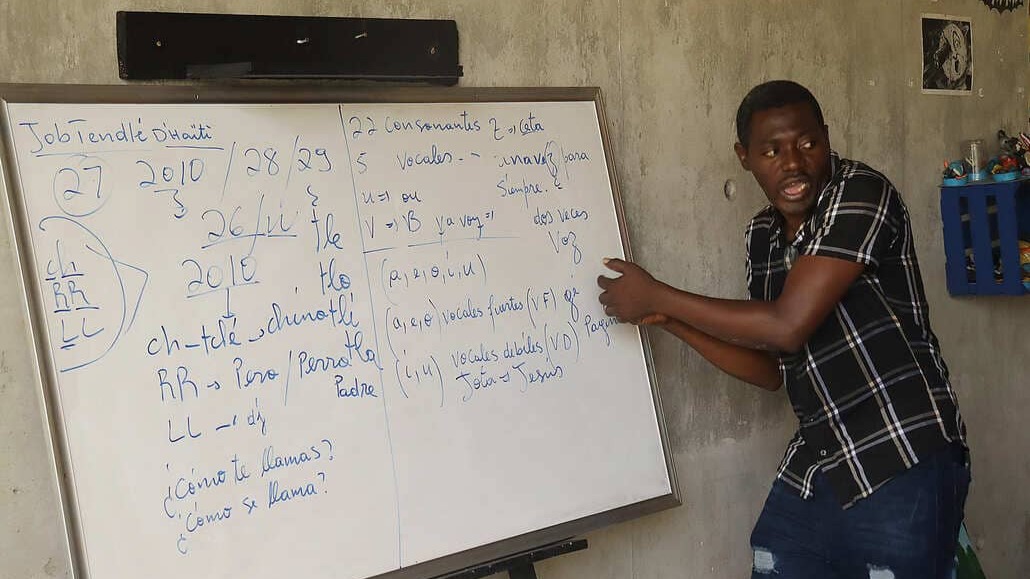 JobTendlé D'Haïti
27 2010 / 28 / 29
26/ii tle
2010 tlo
ch
RR
LL
ch-tclé → chinotli
RR → Pero / Perro tla
Padre
LL → dj
¿Cómo te llamas?
¿Cómo se llama?
22 consonantes Z ⇒ ceta
5 vocales -- para
u ⇒ ou siempre.
V ⇒ B dos veces
Voz
(a, e, o, i, u)
(a, e, o) vocales fuertes (VF)
(i, u) vocales debiles (VD)
Jota → Jesús